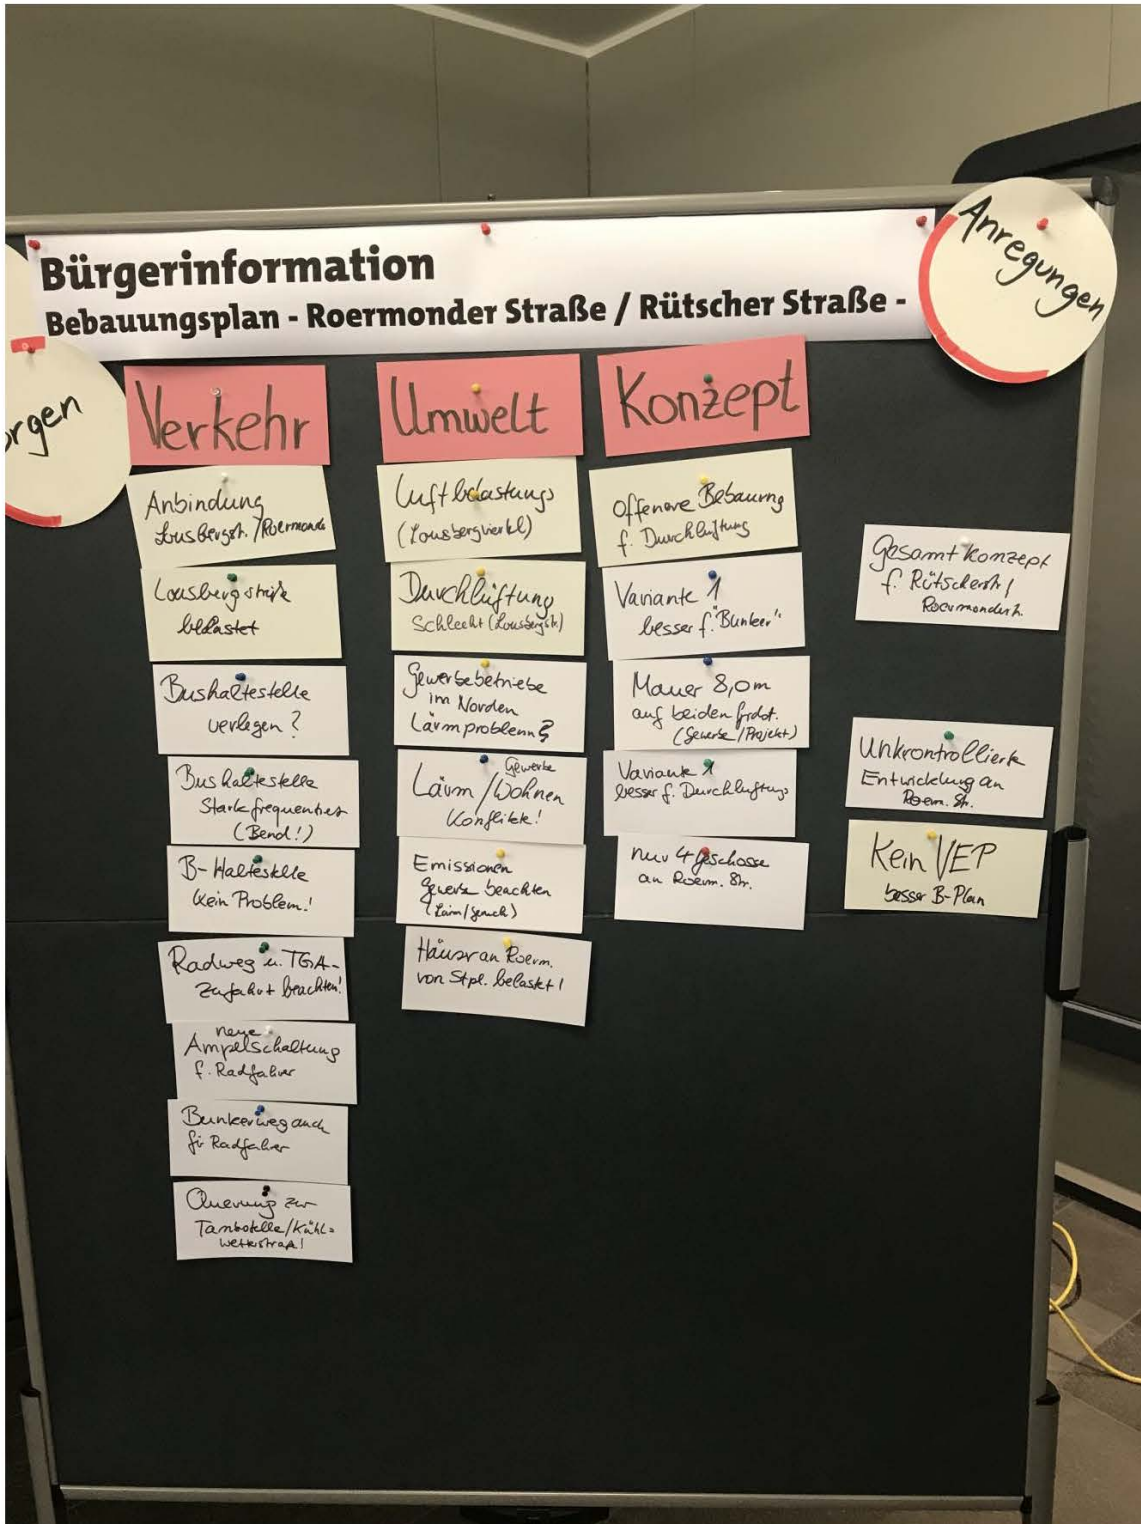 Bürgerinformation
Bebauungsplan - Roermonder Straße / Rütscher Straße -
Anregungen
orgen
Verkehr
Anbindung
Lousbergstr. / Roermonde
Lousbergstraße
belastet
Bushaltestelle
verlegen?
Bushaltestelle
Stark frequentiert
(Bend!)
B-Haltestelle
kein Problem!
Radweg u. TGA-
Zufahrt beachten!
neue
Ampelschaltung
f. Radfahrer
Bunkerweg auch
für Radfahrer
Querung zur
/Kühl=
wetterstraße!
Umwelt
Luftbelastung
(Lousbergviertel)
Durchlüftung
Schlecht (Lousbergstr.)
Gewerbebetriebe
im Norden
Lärmproblem?
Gewerbe
Lärm/Wohnen
Konflikte!
Emissionen
Gewerbe beachten
(Lärm/Geruch)
Häuser an Roerm.
von Stpl. belastet!
Konzept
Offenere Bebauung
f. Durchlüftung
Variante 1
besser f. "Bunker"
Mauer 8,0 m
auf beiden
(Gewerbe/Projekt)
Variante 1
besser f. Durchlüftung
nur 4 Geschosse
an Roerm. Str.
Gesamtkonzept
f. Rütscherstr/
Roermonderstr.
Unkontrollierte
Entwicklung an
Roerm. Str.
Kein VEP
besser B-Plan